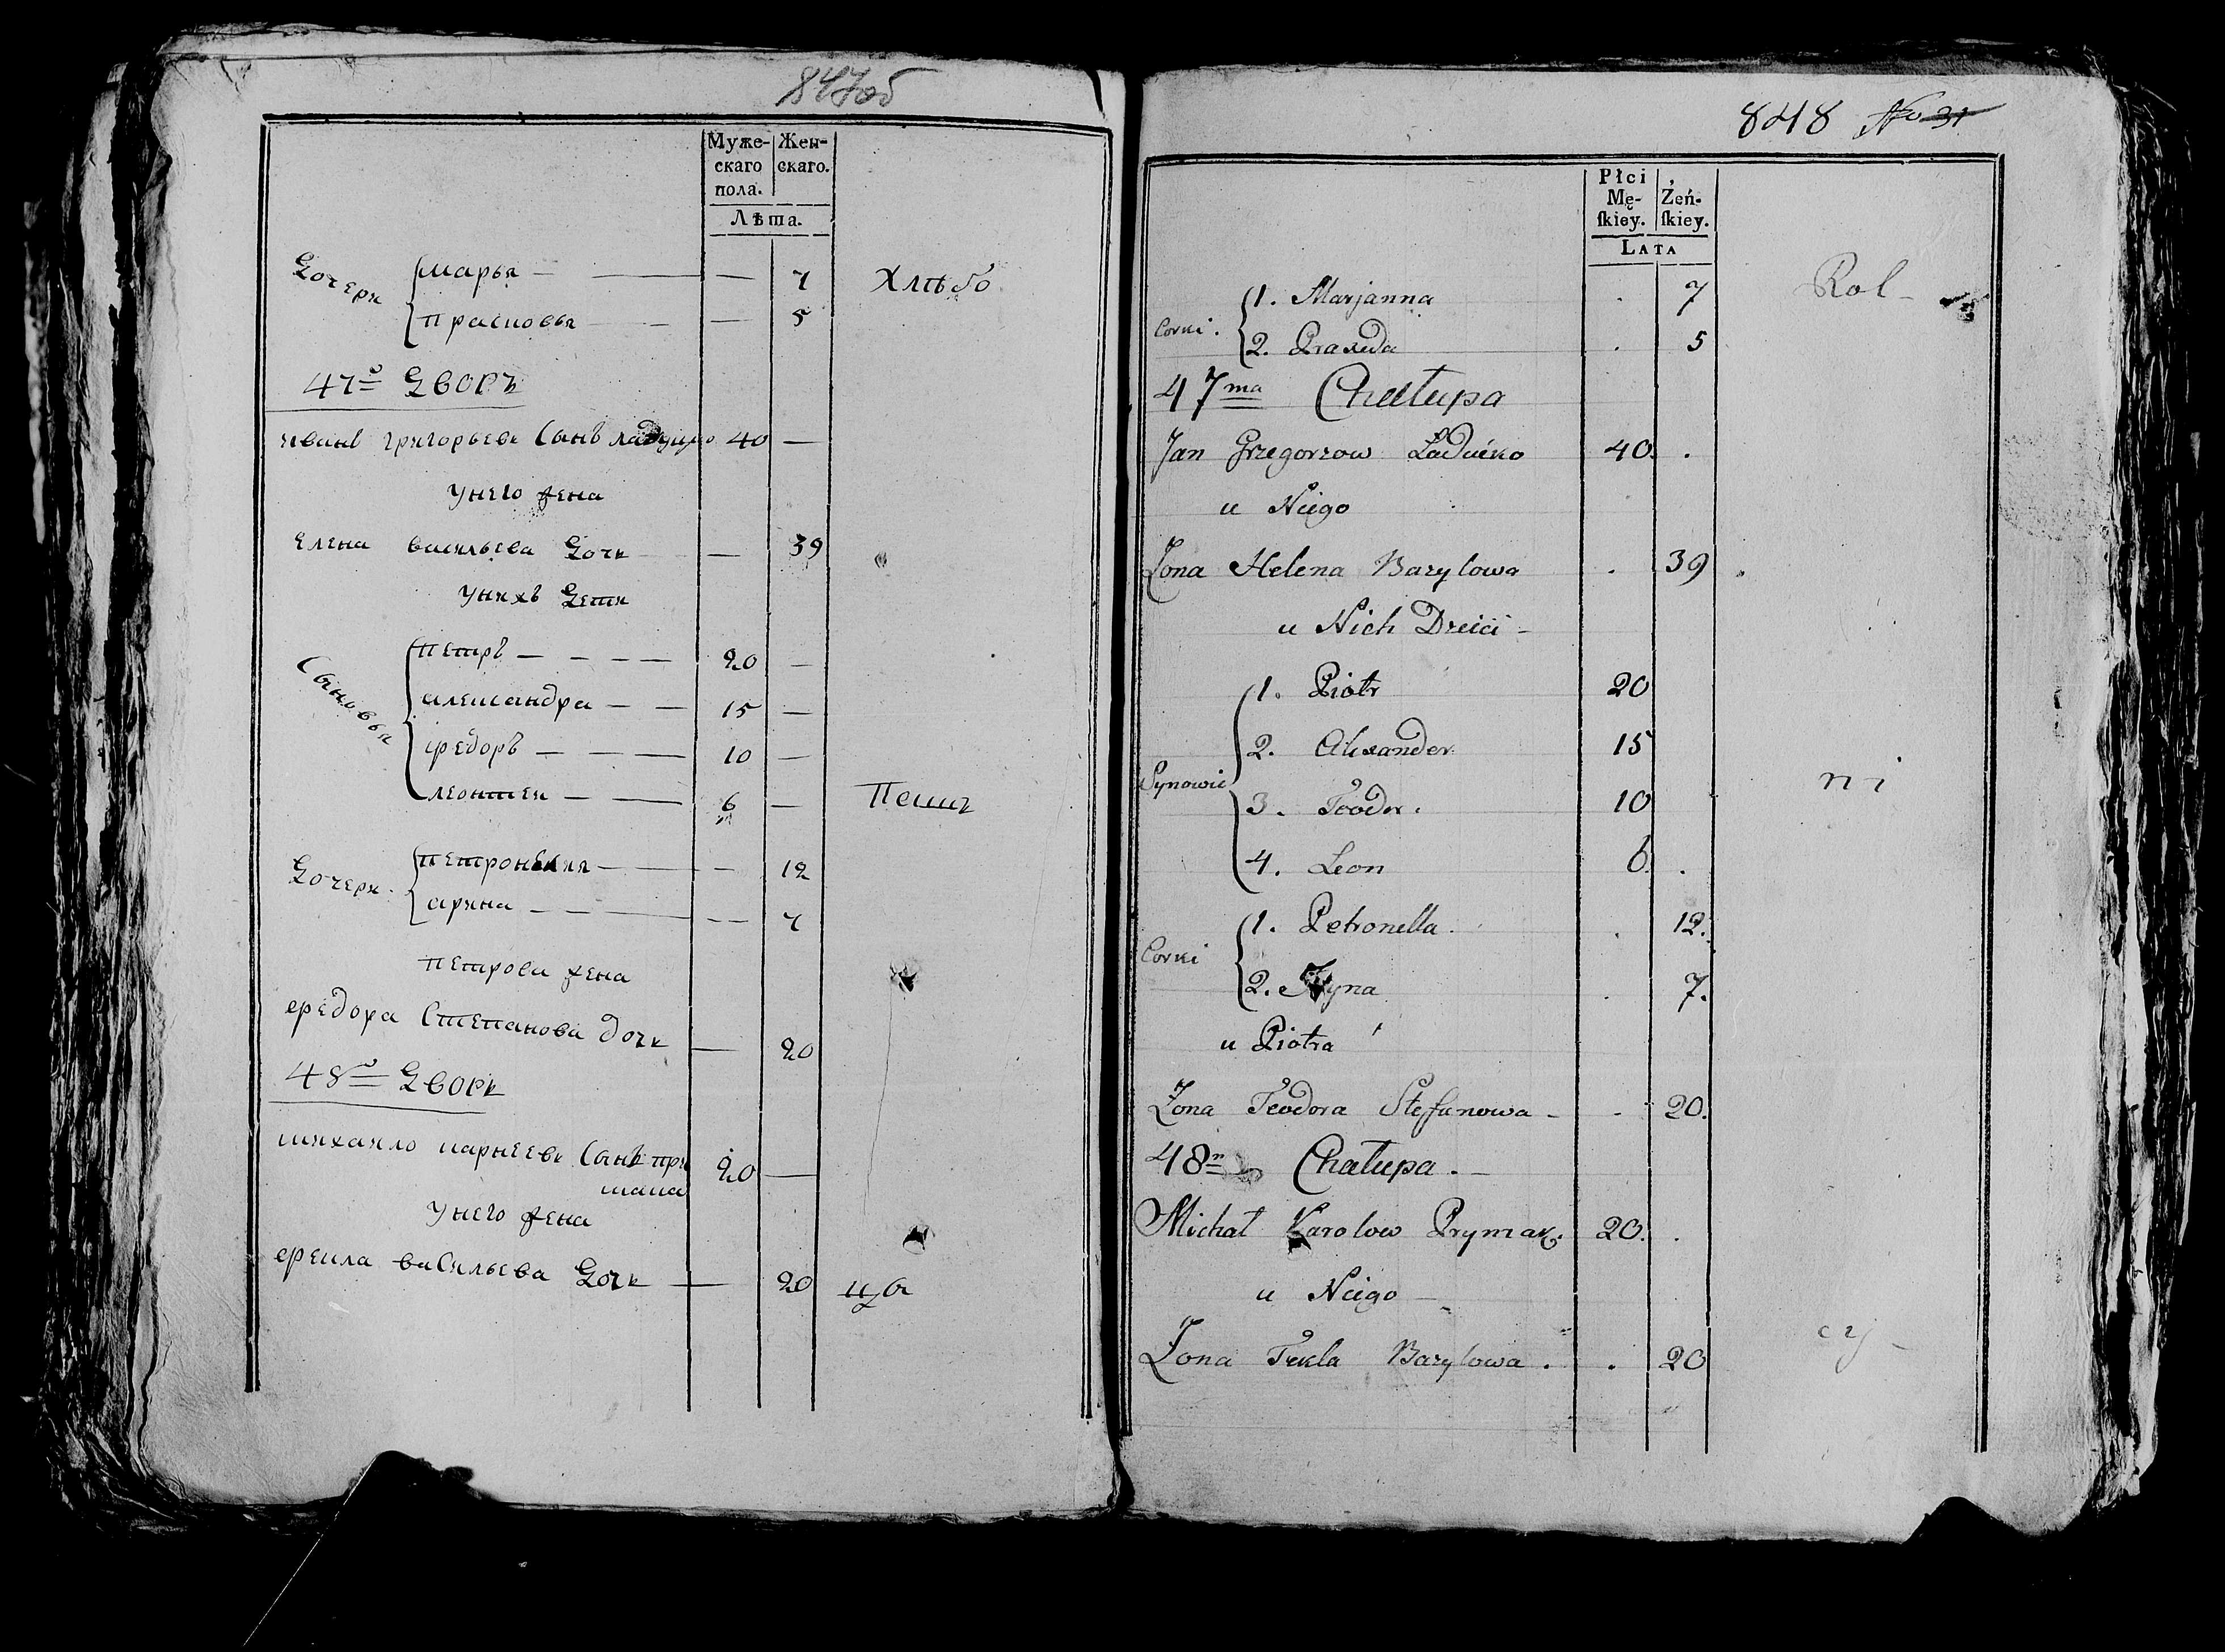 847об
Муже-
скаго
пола.
Жен-
скаго.
Лѣта.
Дочери
марья — — — 7 Хлѣбо
прасковья — — 5
47й Дворъ
иванъ григорьевъ Сынъ 40 —
Унего жена
елена васильева Дочь — 39
Унихъ Дети
Сыновья
петръ — — — — 20 —
александра — — 15 —
федоръ — — — 10 —
леонтеи — — 6 — Паши
Дочери
петронелия — — — 12
арина — — — — 7
петрова жена
федора Степанова дочь — 20
48й Дворъ
михаило карнеевъ Сынъ при
мака 20 —
Унего жена
фекла васильева Дочь — 20 цы
848 No 31
Płci
Mę-
ſkiey.
Żeń-
ſkiey.
LATA
Corki.
1. Marjanna . 7 Rol-
2. Praxeda . 5
47ma Chałupa
Jan Grzegorzow Ładućko 40. .
u Niego
Żona Helena Bazylowa . 39
u Nich Dzieci -
Synowie
1. Piotr 20
2. Alexander 15
3. Teodor. 10 ni
4. Leon 6. .
Corki
1. Petronella . 12.
2. . 7.
u Piotra
Żona Teodora Stefanowa - . 20.
48a Chałupa. -
Michał Karolow Prymak. 20. .
u Niego -
Żona Tekla Bazylowa . . 20 cy-